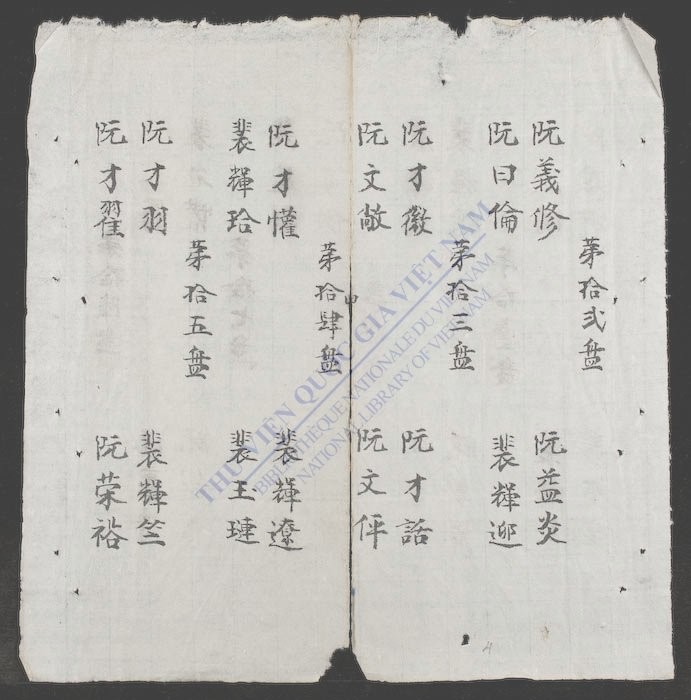 第拾弍盘
阮義修 阮益炎
阮曰倫 裴輝迎
第拾三盘
阮才徽 阮才話
阮文敞 阮文伻
第拾肆盘
阮才懽 裴輝遼
裴輝珨 裴玉璉
第拾五盘
阮才羽 裴輝竺
阮才 阮荣裕
THƯ VIỆN QUỐC GIA VIỆT NAM
BIBLIOTHÈQUE NATIONALE DU VIETNAM
NATIONAL LIBRARY OF VIETNAM